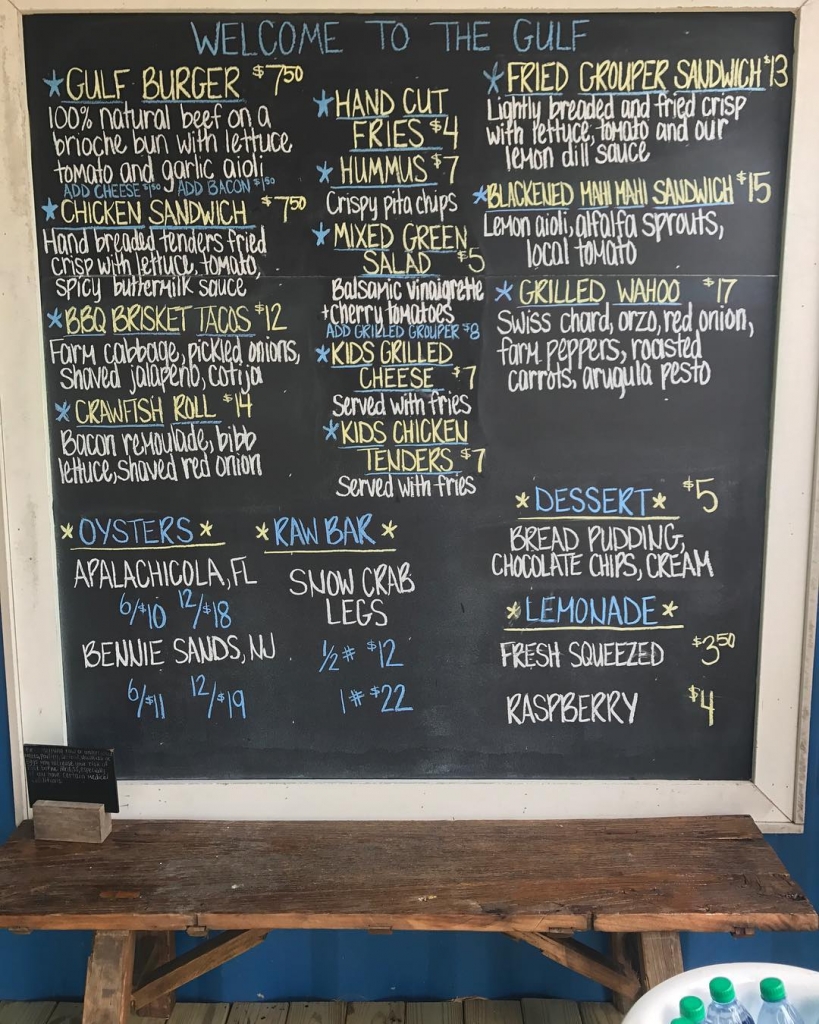 WELCOME TO THE GULF
GULF BURGER $7.50
100% natural beef on a
brioche bun with lettuce
tomato and garlic aioli
ADD CHEESE $1.50 ADD BACON $1.50
CHICKEN SANDWICH $7.50
Hand breaded tenders fried
crisp with lettuce, tomato,
spicy buttermilk sauce
BBQ BRISKET TACOS $12
Farm cabbage, pickled onions,
Shaved jalapeño, cotija
CRAWFISH ROLL $14
Bacon remoulade, bibb
lettuce, shaved red onion
HAND CUT
FRIES $4
HUMMUS $7
Crispy pita chips
MIXED GREEN
SALAD $5
Balsamic vinaigrette
+ cherry tomatoes
ADD GRILLED GROUPER $8
KIDS GRILLED
CHEESE $7
Served with fries
KIDS CHICKEN
TENDERS $7
Served with fries
FRIED GROUPER SANDWICH $13
Lightly breaded and fried crisp
with lettuce, tomato and our
lemon dill sauce
BLACKENED MAHI MAHI SANDWICH $15
Lemon aioli, alfalfa sprouts,
local tomato
GRILLED WAHOO $17
Swiss chard, orzo, red onion,
farm peppers, roasted
carrots, arugula pesto
OYSTERS
APALACHICOLA, FL
6/$10 12/$18
BENNIE SANDS, NJ
6/$11 12/$19
RAW BAR
SNOW CRAB
LEGS
1/2 # $12
1 # $22
DESSERT $5
BREAD PUDDING,
CHOCOLATE CHIPS, CREAM
LEMONADE
FRESH SQUEEZED $3.50
RASPBERRY $4